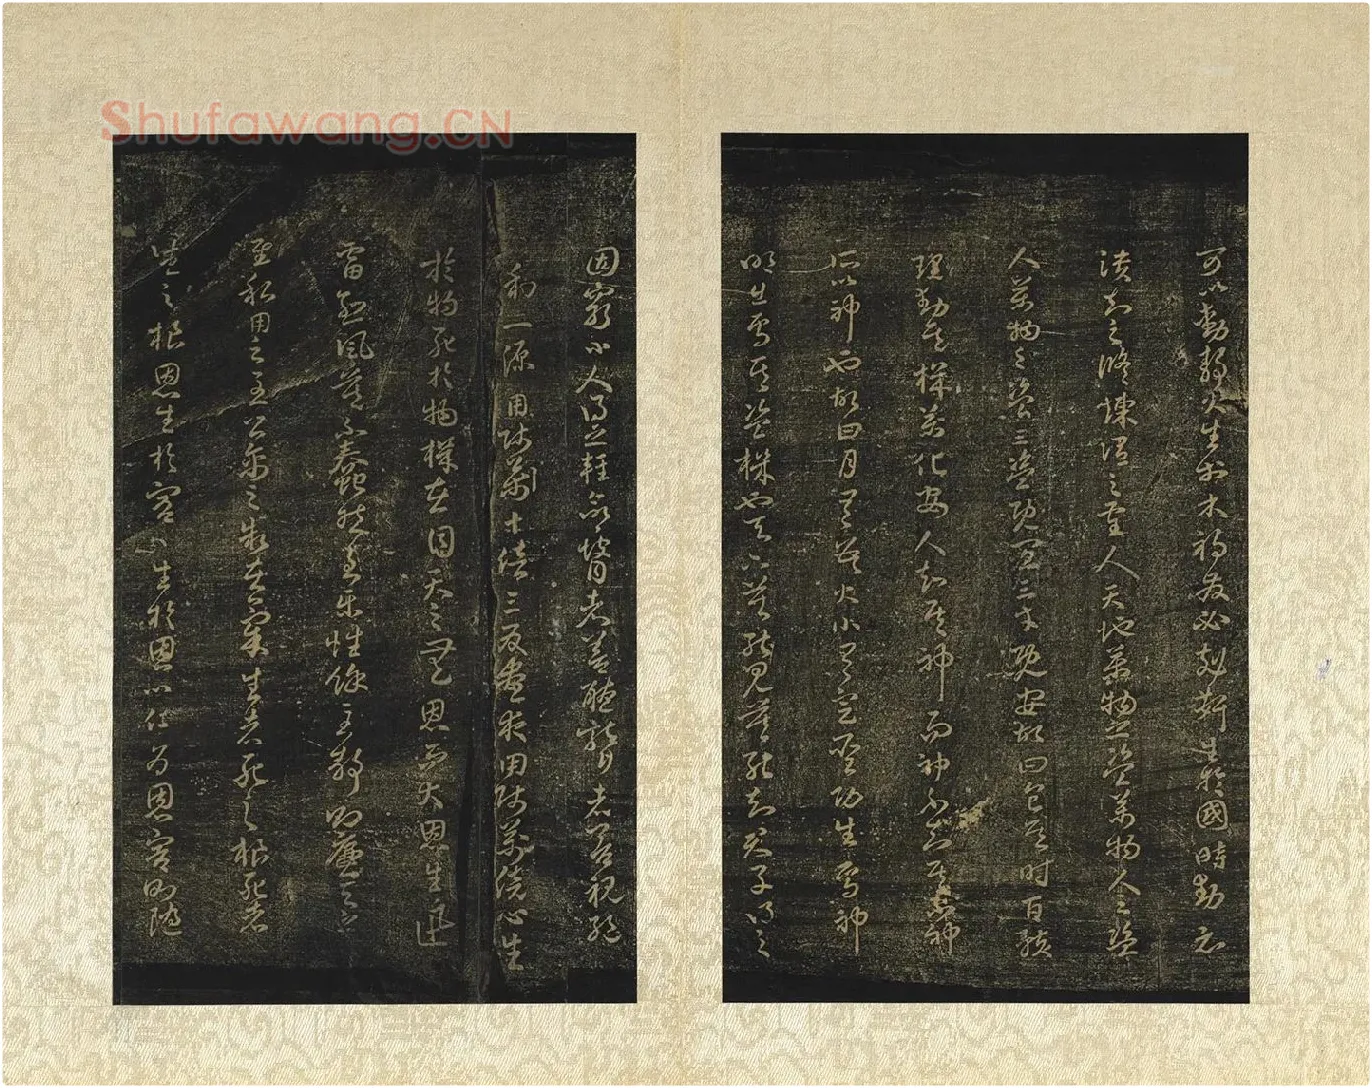 Shufawang.CN
可以動靜火生於木禍發必剋姧生於國時動必
潰知之修鍊謂之聖人天地萬物之盜萬物人之盜
人萬物之盜三盜既宜三才既安故曰食其時百骸
理動其機萬化安人知其神而神不知其神
所以神也故曰月有數大小有定聖功生焉神
明出焉其盜機也天下莫能見莫能知君子得之
固窮小人得之輕命瞽者善聽聾者善視絕
利一源用師萬十倍三反晝夜用師萬倍心生
於物死於物機在目天之無恩而大恩生迅
雷烈風莫不蠢然至樂性餘至靜則廉天之
至私用之至公禽之制在氣生者死之根死者
生之根恩生於害〻生於恩以仁為恩害則隨